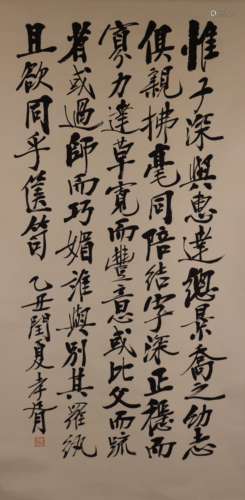 惟子深與惠達總景喬之幼志
俱親拂毫同陪結字深正穩而
寡力達草寬而豐意或比父而疏
者或過師而巧媚誰與別其羅紈
且欲同乎篋笥 乙丑閏夏孝胥